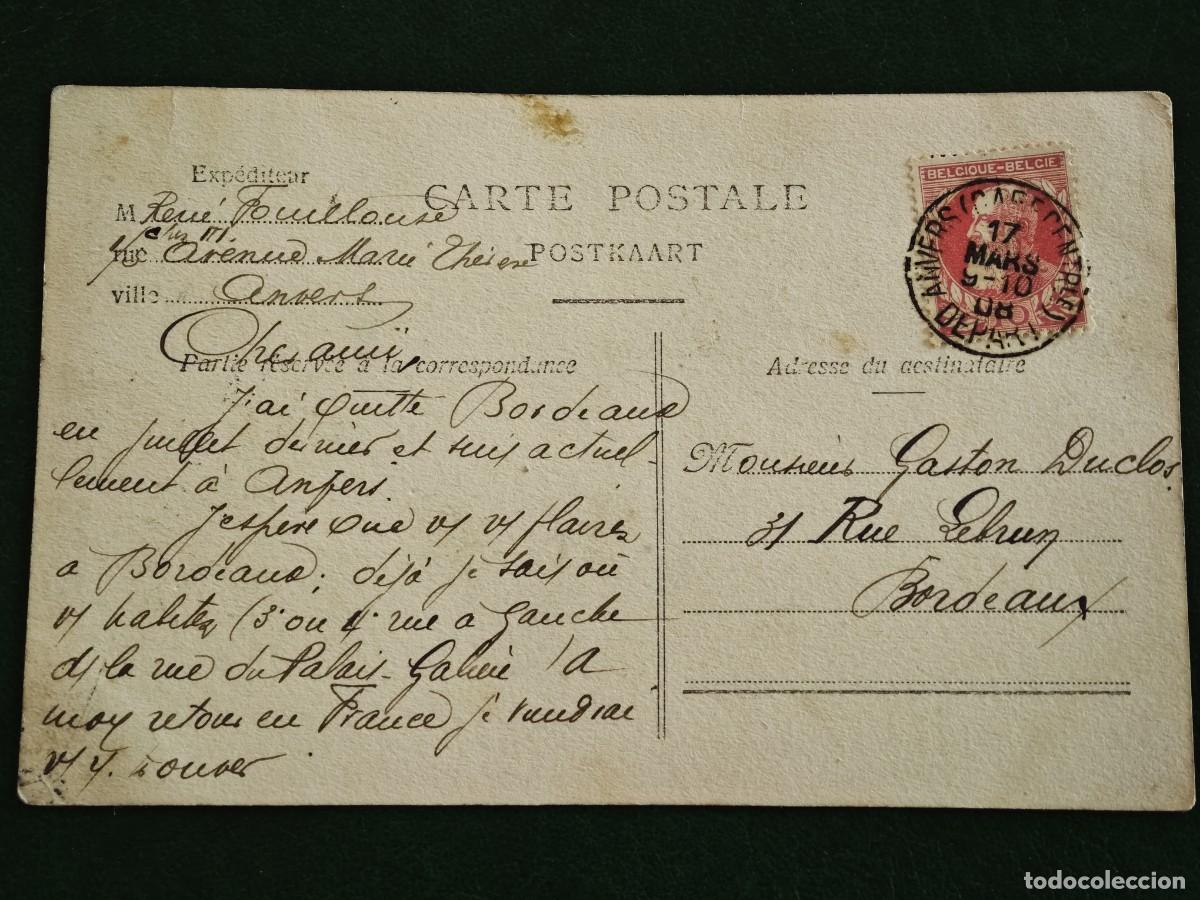 Expéditeur
M René Fouillouse
rue Avenue Marie Thérèse
ville Anvers
CARTE POSTALE
POSTKAART
BELGIQUE-BELGIE
ANVERS (GARE CENTRALE)
17
MARS
9-10
08
DEPART
Cher ami,
Partie réservée à la correspondance
J'ai quitté Bordeaux
en juillet dernier et suis actuel-
lement à Anvers.
J'espère que vs vs plairez
a Bordeaux. déjà je sais où
vs habitez (3e ou 4e rue à Gauche
de la rue du Palais-Galien! A
mon retour en France je viendrai
vs y. trouver
Adresse du destinataire
Monsieur Gaston Duclos.
31 Rue Lebrun
Bordeaux
todocoleccion